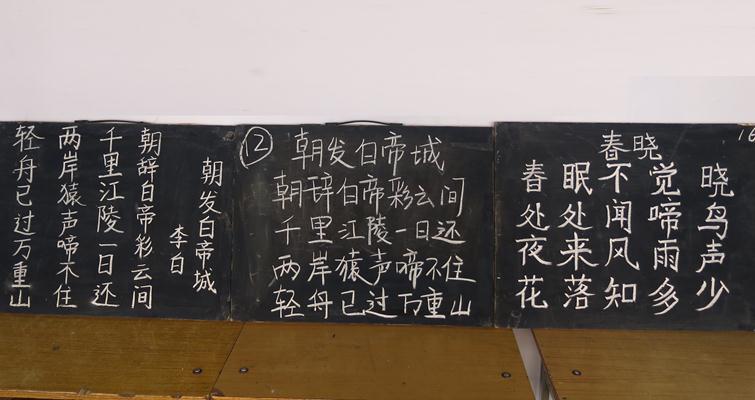 朝发白帝城
李白
朝辞白帝彩云间
千里江陵一日还
两岸猿声啼不住
轻舟已过万重山
⑫ 朝发白帝城
朝辞白帝彩云间
千里江陵一日还
两岸猿声啼不住
轻舟已过万重山
春晓
春眠不觉晓
处处闻啼鸟
夜来风雨声
花落知多少